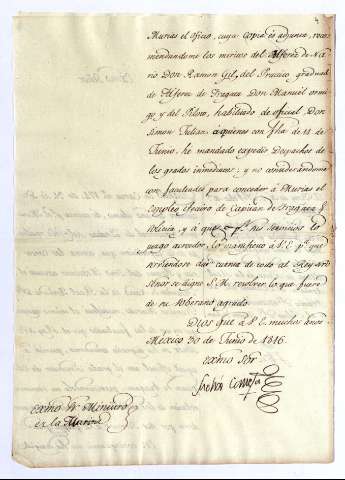 4
Murias el oficio, cuya copia es adjunta, reco-
mendandome los meritos del Alferez de Na-
vio Don Ramon Gil, del Practico graduad
de Alferez de Fragata Don Manuel
go y del Piloto, habilitado de oficial, Don
Simon Julian, a quienes con fha de 11 de
Junio, he mandado expedir Despachos de
los grados inmediatos; y no considerandome
con facultades para conceder à Murias el
Empleo efectivo de Capitan de Fragata q.
solicita, y à que sus servicios lo
hacen acrehedor, lo manifiesto à V.E. p.a que
sirviendose dar cuenta de todo al Rey nro
Señor se digne S.M. resolver lo que fuere
de su soberano agrado.
Dios gue à V.E. muchos anos
Mexico 30 de Junio de 1816.
Exmo Sor
Exmo Sr Ministro
de la Marina